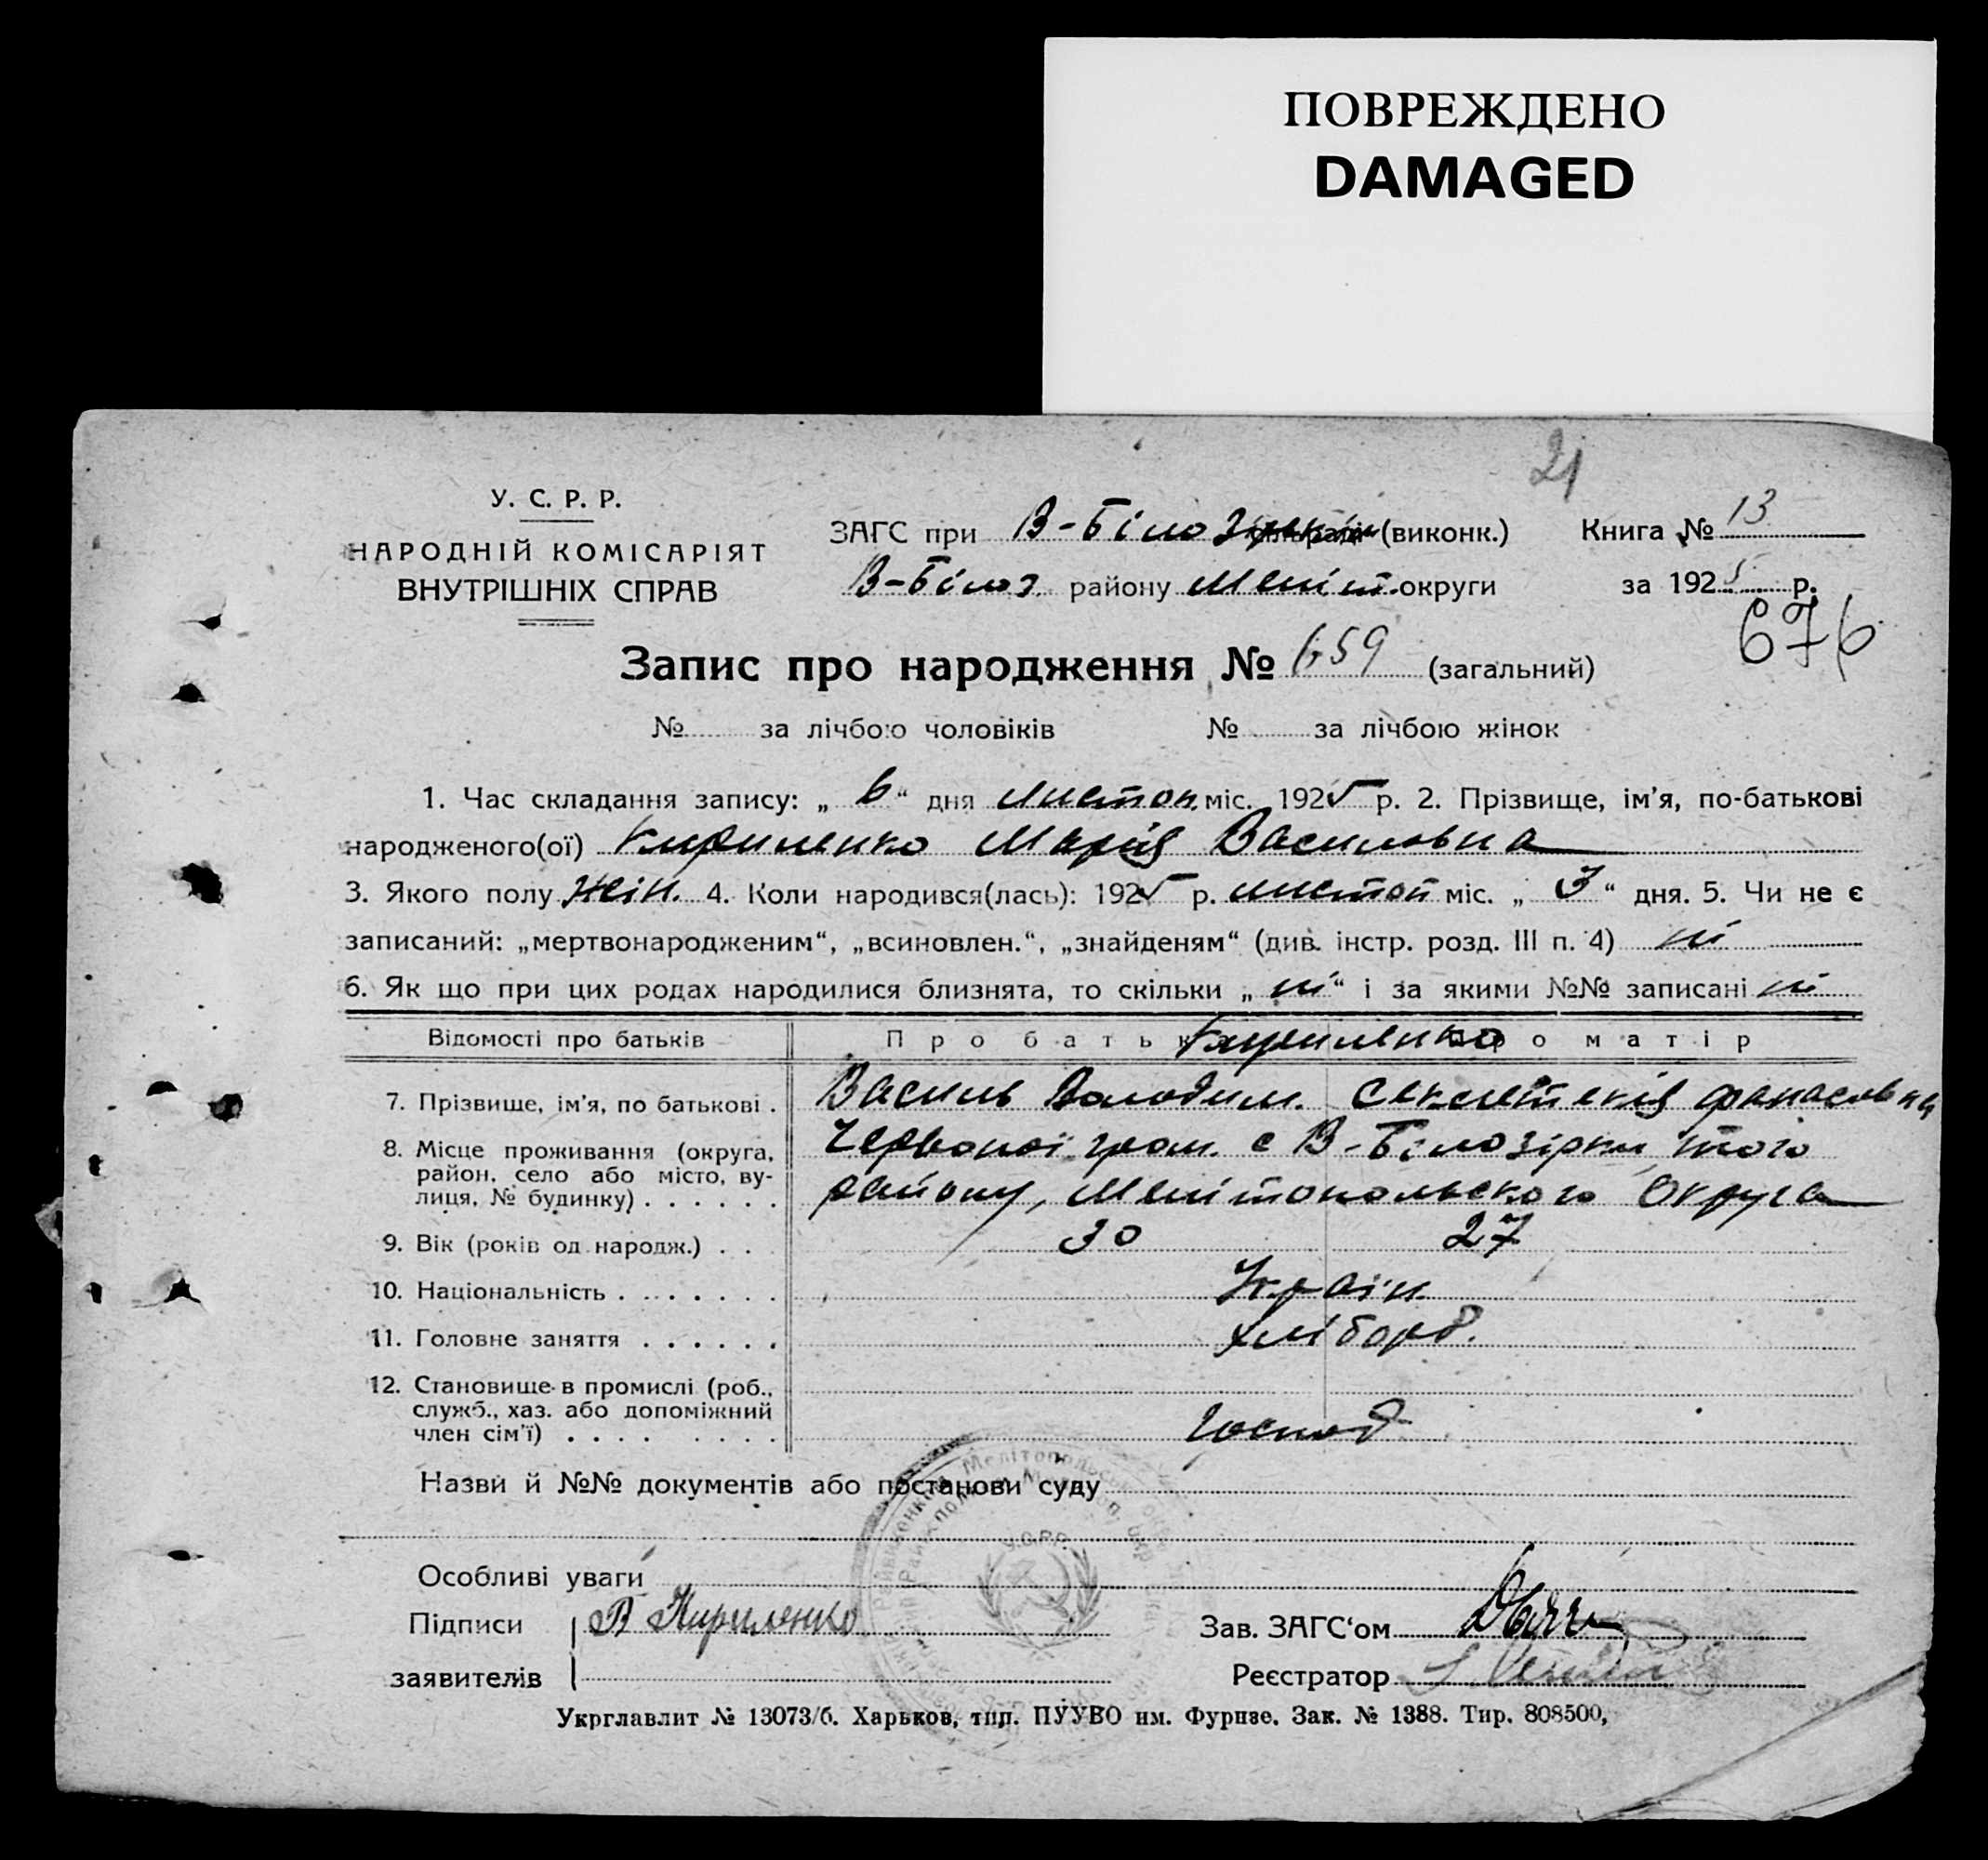 ПОВРЕЖДЕНО
DAMAGED
21
У. С. Р. Р.
НАРОДНІЙ КОМІСАРІЯТ
ВНУТРІШНІХ СПРАВ
ЗАГС при В-Білозірськім (виконк.) Книга № 13
В-Білоз. району Меліт. округи за 1925 р.
676
Запис про народження № 659 (загальний)
№ за лічбою чоловіків № за лічбою жінок
1. Час складання запису: „ 6 “ дня листоп. міс. 1925 р. 2. Прізвище, ім'я, по-батькові
народженого(ої) Кириленко Марія Василовна
3. Якого полу жін. 4. Коли народився(лась): 1925 р. листоп міс. „ 3 “ дня. 5. Чи не є
записаний: „мертвонародженим“, „всиновлен.“, „знайденям“ (див. інстр. розд. III п. 4) ні
6. Як що при цих родах народилися близнята, то скільки „ ні “ і за якими №№ записані ні
Відомості про батьків Про батька Кириленко Про матір
7. Прізвище, ім'я, по батькові . Василь Володим. Секлетекія Фанасовна
8. Місце проживання (округа, район, село або місто, вулиця, № будинку) . . . . . . Червоної гром. с В-Білозірки того
району, Мелітопольского Округа
9. Вік (років од народж.) . . . 30 27
10. Національність . . . . . . . Україн.
11. Головне заняття . . . . . . хлібороб.
12. Становище в промислі (роб.,
служб., хаз. або допоміжний
член сім'ї) . . . . . . . . Господ
Назви й №№ документів або постанови суду
Особливі уваги
Підписи В Кириленко Зав. ЗАГС‘ом
заявителів Реєстратор
Укрглавлит № 13073/б. Харьков, тип. ПУУВО им. Фрунзе. Зак. № 1388. Тир. 808500,
У.С.Р.Р.